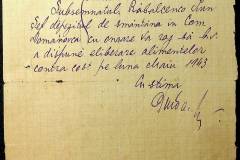 Subsemnatul, Răbalcenco Ivan
Șef depozitul de smântână in Com
Domanovca cu onoare Vă rog să bi
a dispune eliberare alimentelor
contra cost pe luna Maiu 1943
Cu stimă